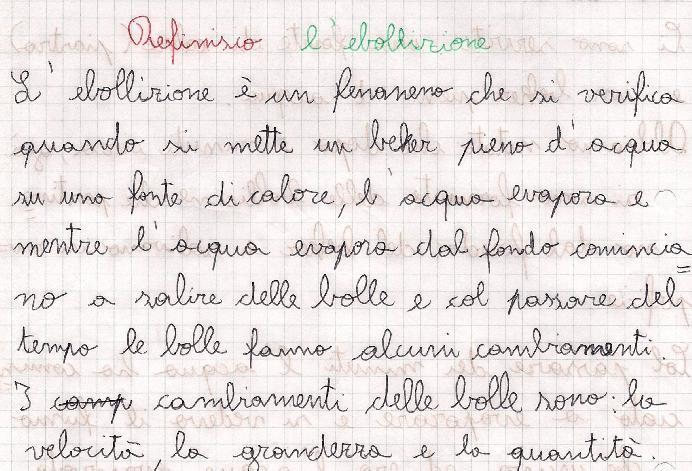 Definisco l'ebollizione
L'ebollizione è un fenomeno che si verifica
quando si mette un beker pieno d'acqua
su una fonte di calore, l'acqua evapora e
mentre l'acqua evapora dal fondo comincia
no a salire delle bolle e col passare del
tempo le bolle fanno alcuni cambiamenti.
I camp cambiamenti delle bolle sono: la
velocità, la grandezza e la quantità.